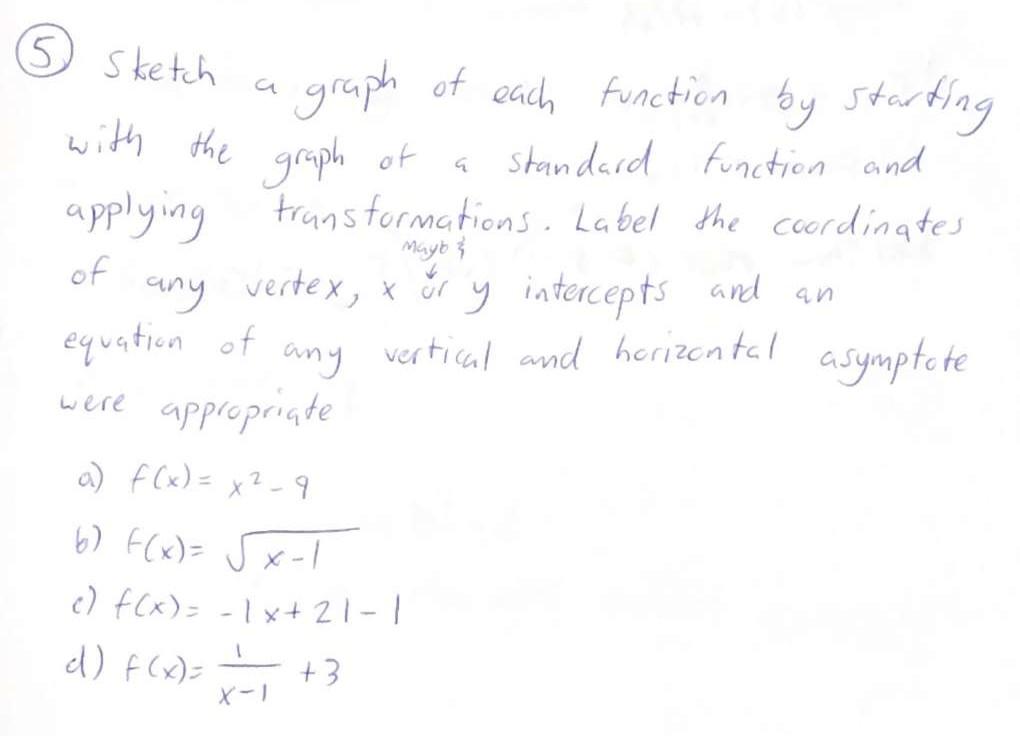 ⑤ Sketch a graph of each function by starting
with the graph of a standard function and
applying transformations. Label the coordinates
mayb &
↓
of any vertex, x or y intercepts and an
equation of any vertical and horizontal asymptote
were appropriate
a) f(x) = x² - 9
b) f(x) = √(x-1)
c) f(x) = -|x+2|-1
d) f(x) = 1/(x-1) + 3